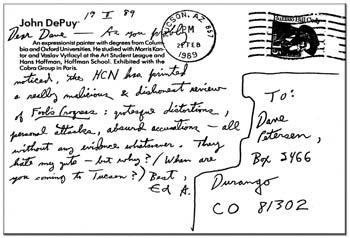 John DePuy
An expressionist painter with degrees from Colum-
bia and Oxford Universities. He studied with Morris Kan-
tor and Vaslav Vytlacyl at the Art Student League and
Hans Hoffman, Hoffman School. Exhibited with the
Cobra Group in Paris.
17 II 89
Dear Dave — As you prob'ly
noticed, the HCN has printed
a really malicious & dishonest review
of Fool's Progress: grotesque distortions,
personal attacks, absurd accusations — all
without any evidence whatsoever. They
hate my guts — but why? / When are
you coming to Tucson?) Best,
Ed A.
TUCSON, AZ 857
PM
FEB
1989
To:
Dave
Petersen,
Box 3466
Durango
CO 81302